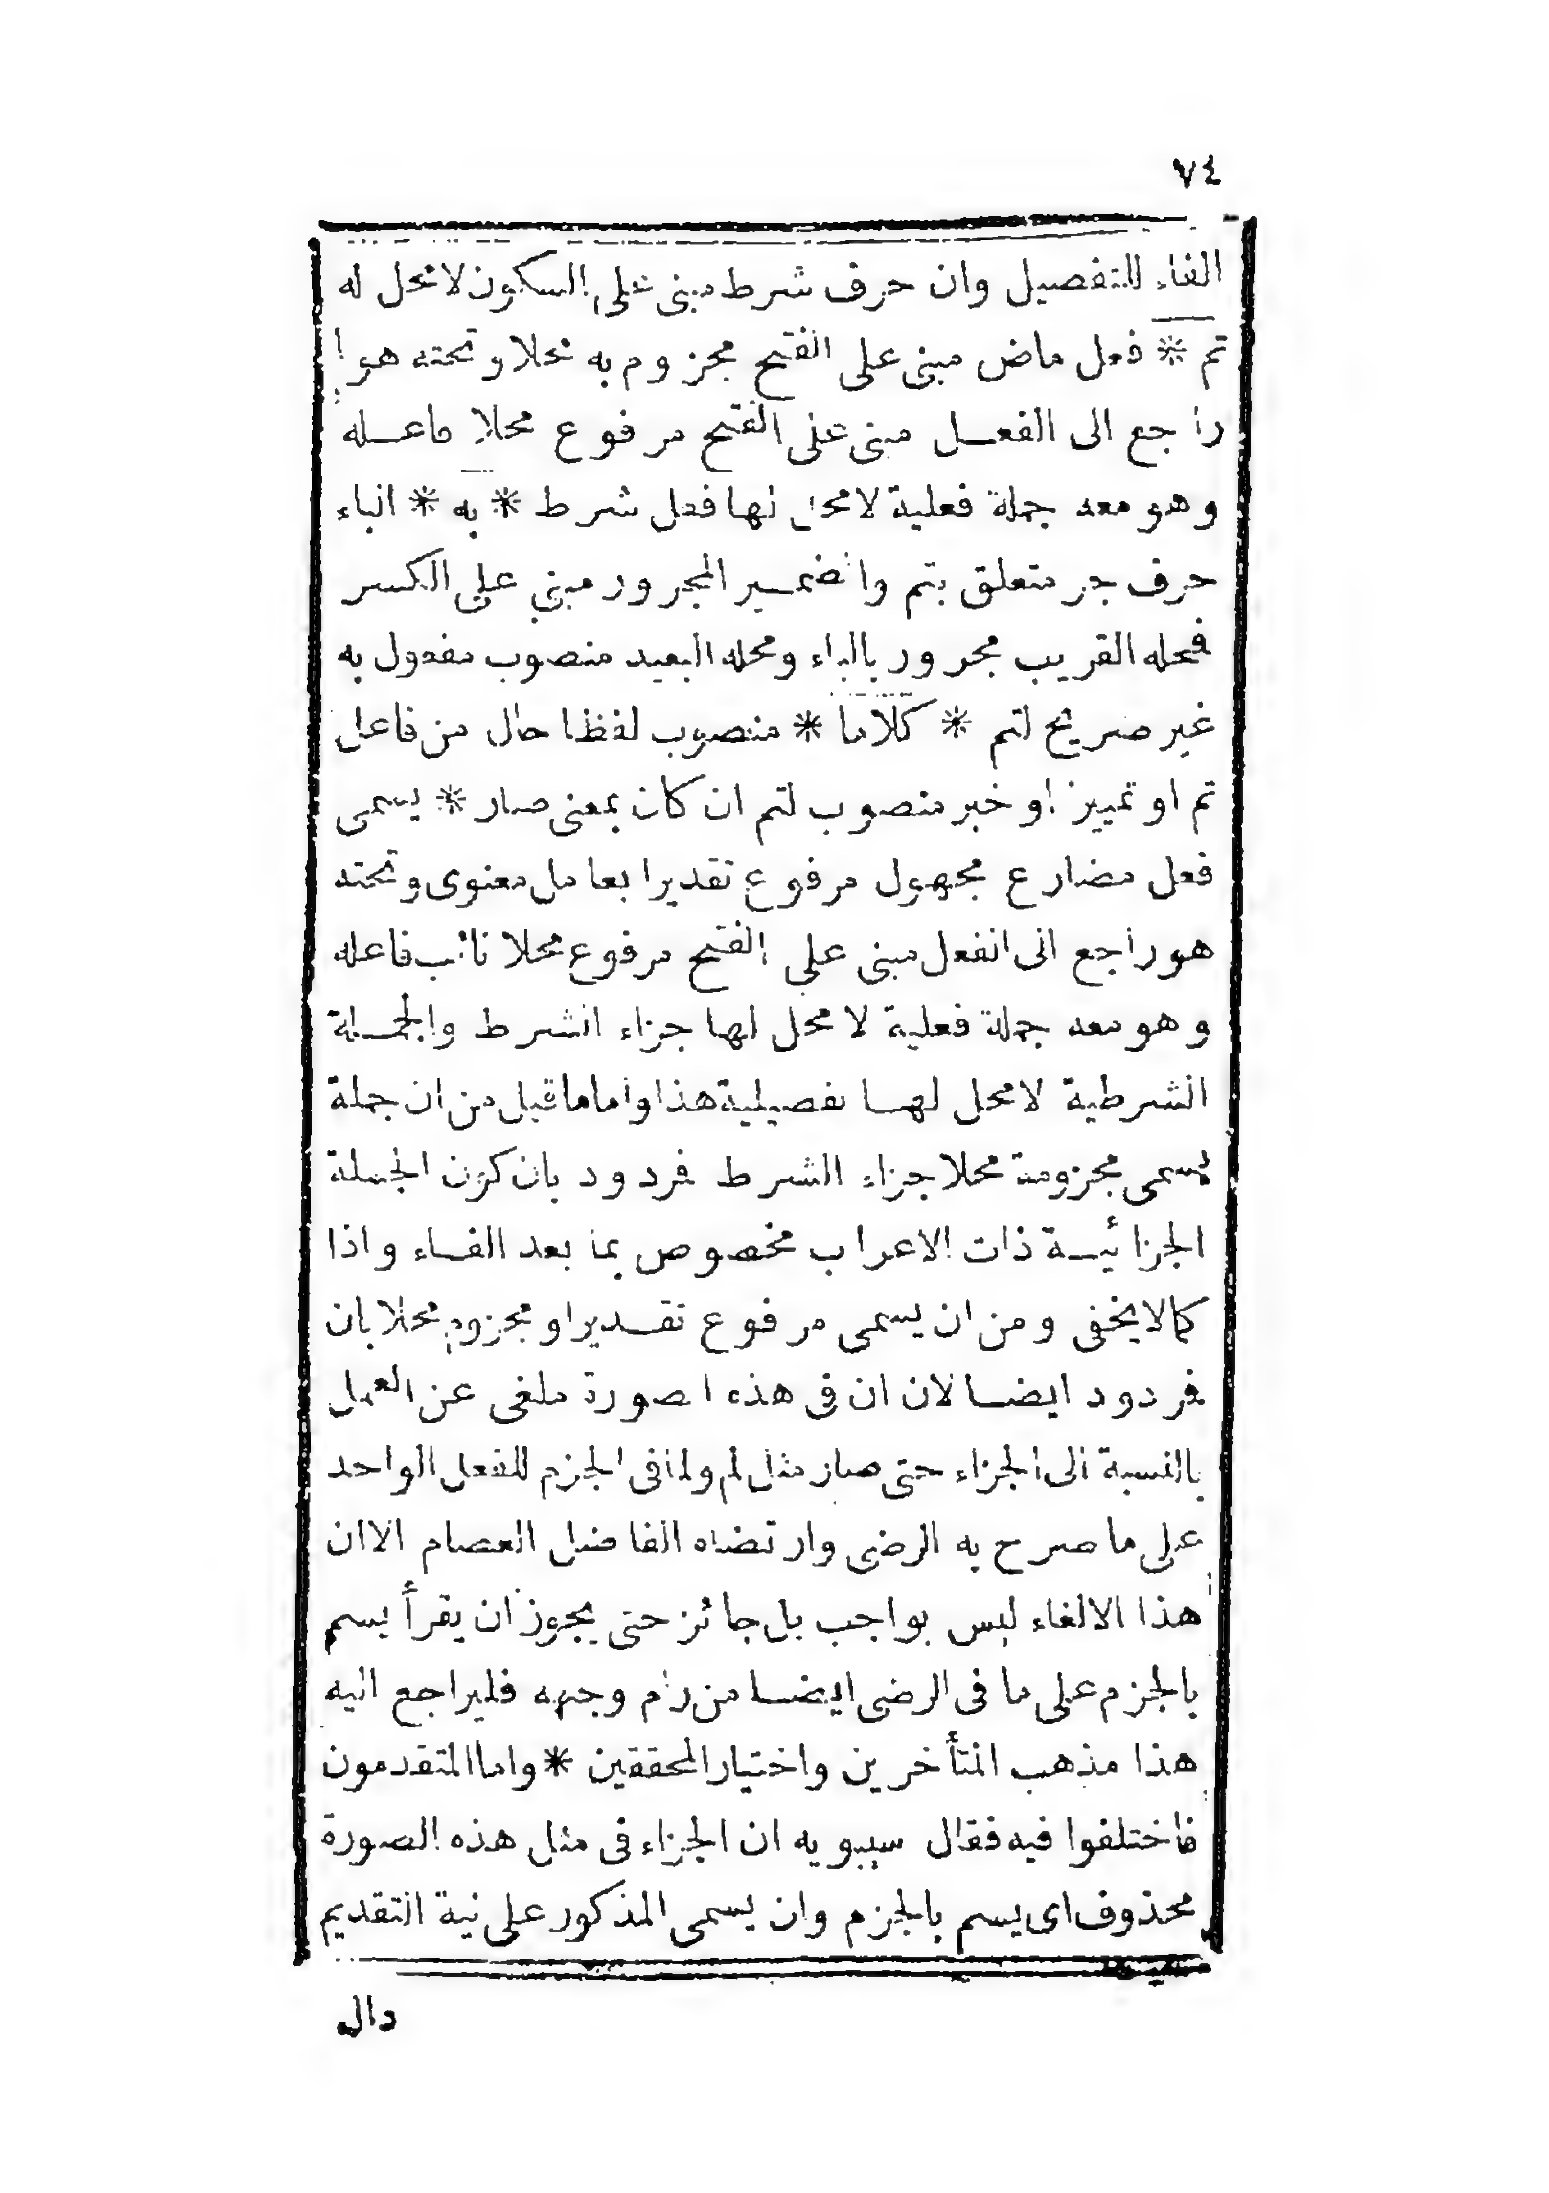 ٧٤
الفاء للتفصيل وان حرف شرط مبنى على السكون لامحل له
تم * فعل ماض مبنى على الفتح مجزوم به محلا وتحته هو
راجع الى الفعل مبنى على الفتح مرفوع محلا فاعله
وهو معه جملة فعلية لا محل لها فعل شرط * به * الباء
حرف جر متعلق بتم والضمير المجرور مبنى على الكسر
فمحله القريب مجرور بالباء ومحله البعيد منصوب مفعول به
غير صريح لتم * كلاما * منصوب لفظا حال من فاعل
تم او تمييز او خبر منصوب لتم ان كان بمعنى صار * يسمى
فعل مضارع مجهول مرفوع تقديرا بعامل معنوى وتحته
هو راجع الى الفعل مبنى على الفتح مرفوع محلا نائب فاعله
وهو معه جملة فعلية لا محل لها جزاء الشرط والجملة
الشرطية لا محل لها تفصيلية هذا واما ماقيل من ان جملة
يسمى مجزومة محلا جزاء الشرط فمردود بان كون الجملة
الجزائية ذات الاعراب مخصوص بما بعد الفاء واذا
كما لا يخفى ومن ان يسمى مرفوع تقديرا و مجزوم محلا بان
فمردود ايضا لان ان فى هذه الصورة ملغى عن العمل
بالنسبة الى الجزاء حتى صار مثل لم ولما فى الجزم للفعل الواحد
على ما صرح به الرضى وارتضاه الفاضل العصام الا ان
هذا الالغاء ليس بواجب بل جائز حتى يجوز ان يقرأ يسم
بالجزم على ما فى الرضى ايضا من رام وجهه فليراجع اليه
هذا مذهب المتأخرين واختيار المحققين * واما المتقدمون
فاختلفوا فيه فقال سيبويه ان الجزاء فى مثل هذه الصورة
محذوف اى يسم بالجزم وان يسمى المذكور على نية التقديم
دال